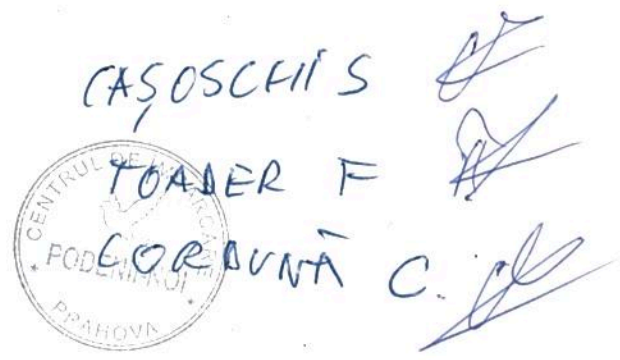 CAȘOSCHI S
TOADER F
CORDUNĂ C.
CENTRUL DE
PRAHOVA